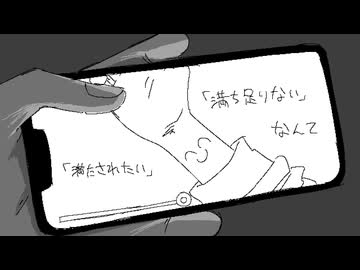 「満ち足りない」
なんて
「満たされたい」